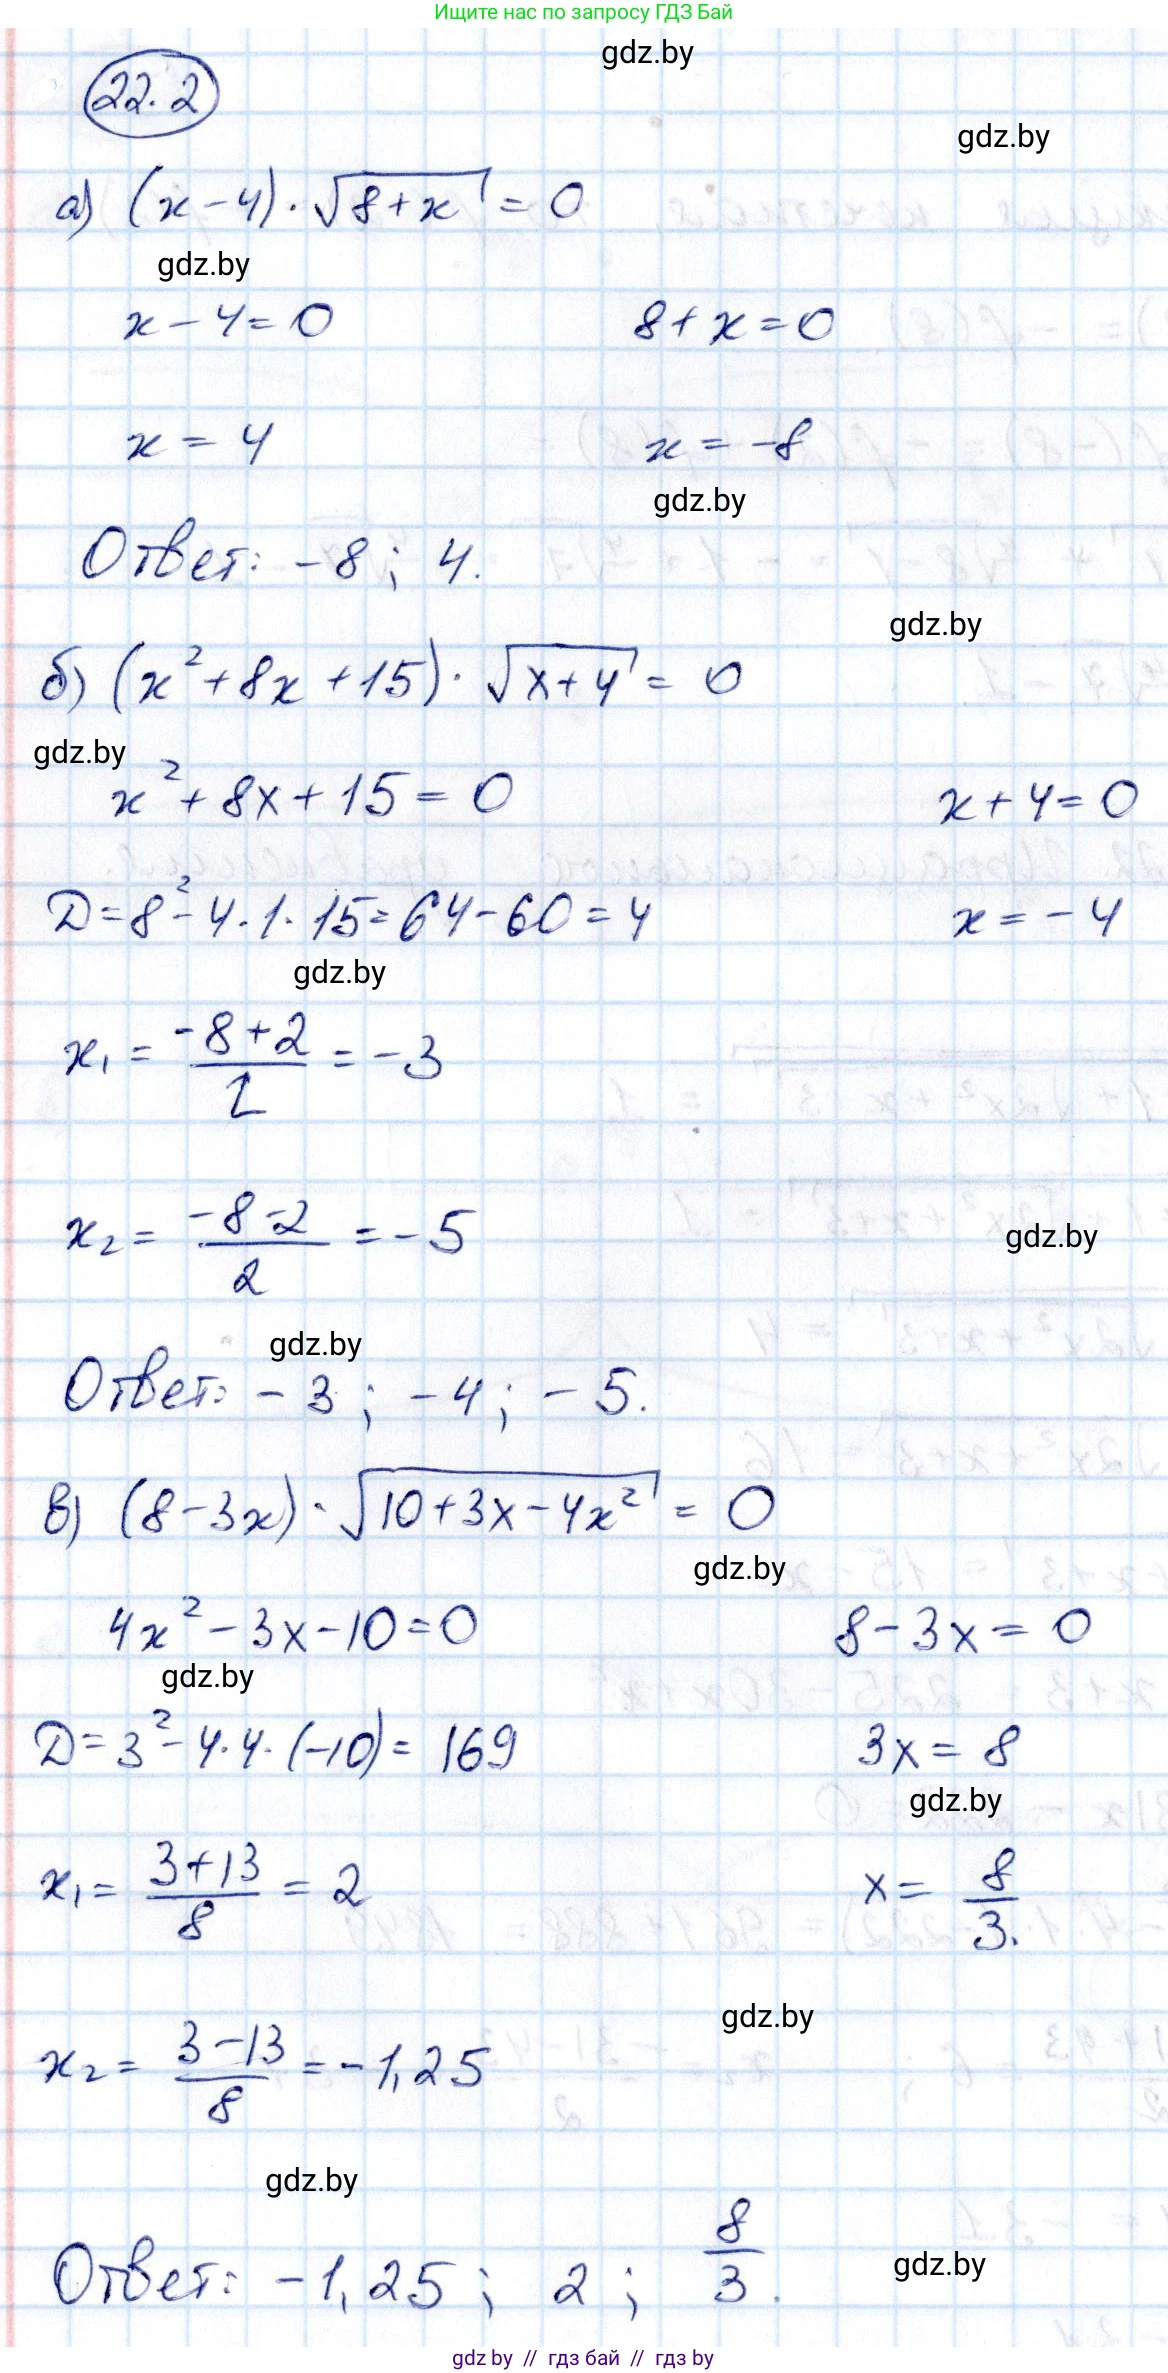 Ищите нас по запросу ГДЗ Бай
gdz.by
22.2
gdz.by
а) (x-4)·√8+x = 0
gdz.by
x-4=0 8+x=0
x = 4 x = -8
gdz.by
Ответ: -8; 4.
gdz.by
б) (x²+8x+15)·√x+4 = 0
gdz.by
x²+8x+15=0 x+4=0
D=8²-4·1·15=64-60=4 x=-4
gdz.by
x₁ = (-8+2)/2 = -3
x₂ = (-8-2)/2 = -5
gdz.by
gdz.by
Ответ: -3; -4; -5.
в) (8-3x)·√10+3x-4x² = 0
gdz.by
4x²-3x-10=0 8-3x=0
gdz.by
D=3²-4·4·(-10)=169 3x=8
gdz.by
x₁ = (3+13)/8 = 2 x = 8/3.
gdz.by
x₂ = (3-13)/8 = -1,25
gdz.by
Ответ: -1,25; 2; 8/3.
gdz.by
gdz.by // гдз бай // гдз by